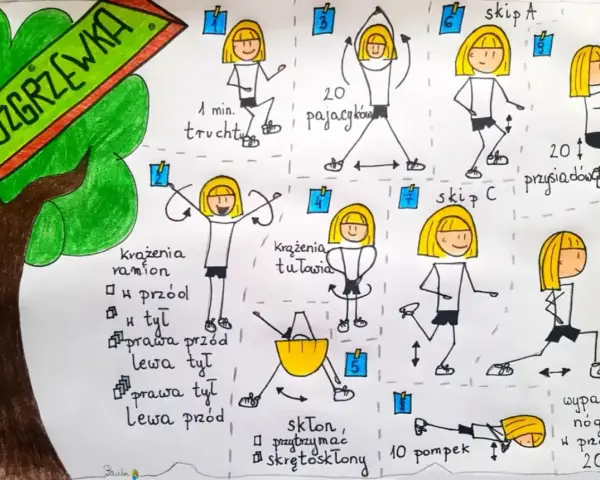 OZGRZEWKA
1
1 min.
truchtu
3
20
pajacyków
6
skip A
9
20
przysiadów
2
krążenia
ramion
w przód
w tył
prawa przód
lewa tył
prawa tył
lewa przód
4
krążenia
tułowia
7
skip C
5
skłon
przytrzymać
skrętoskłony
8
10 pompek
wypa
nóg
w prz
20